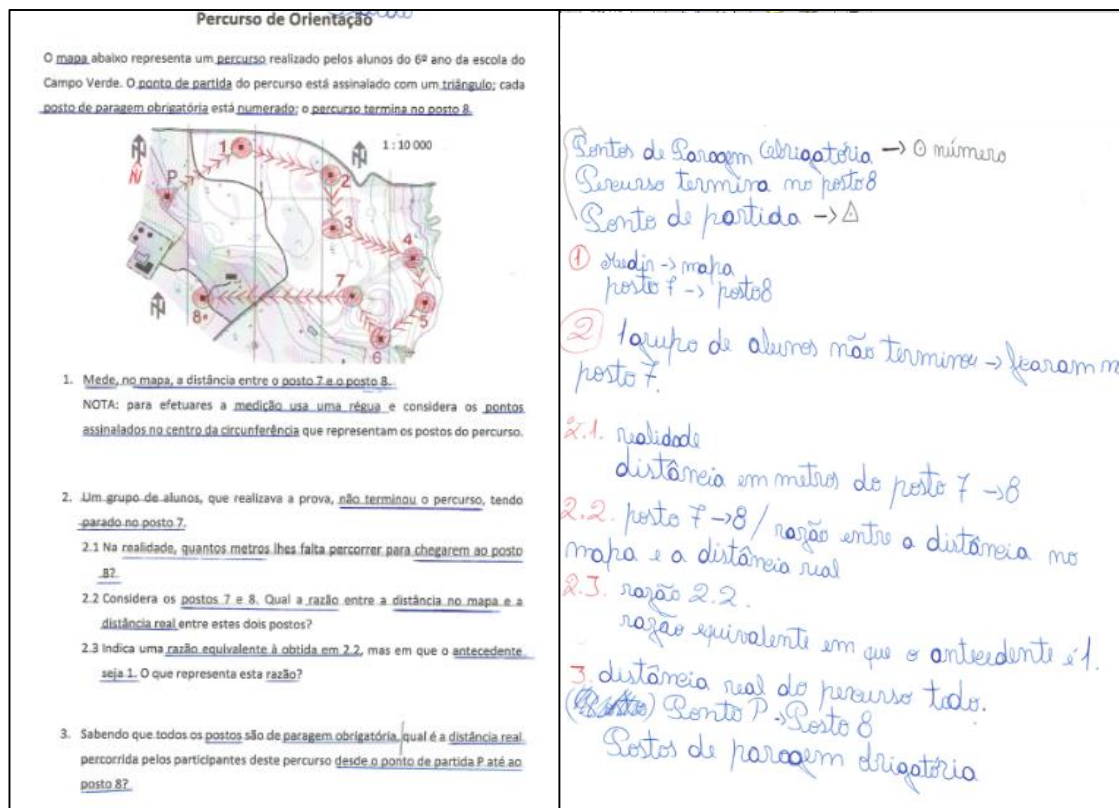 Percurso de Orientação
O mapa abaixo representa um percurso realizado pelos alunos do 6º ano da escola do
Campo Verde. O ponto de partida do percurso está assinalado com um triângulo; cada
posto de paragem obrigatória está numerado; o percurso termina no posto 8.
1 : 10 000
N
N
N
P
1
2
3
4
5
6
7
8
1. Mede, no mapa, a distância entre o posto 7 e o posto 8.
NOTA: para efetuares a medição usa uma régua e considera os pontos
assinalados no centro da circunferência que representam os postos do percurso.
2. Um grupo de alunos, que realizava a prova, não terminou o percurso, tendo
parado no posto 7.
2.1 Na realidade, quantos metros lhes falta percorrer para chegarem ao posto
8?
2.2 Considera os postos 7 e 8. Qual a razão entre a distância no mapa e a
distância real entre estes dois postos?
2.3 Indica uma razão equivalente à obtida em 2.2, mas em que o antecedente
seja 1. O que representa esta razão?
3. Sabendo que todos os postos são de paragem obrigatória, qual é a distância real
percorrida pelos participantes deste percurso desde o ponto de partida P até ao
posto 8?
Pontos de Paragem Obrigatória → O número
Percurso termina no posto 8
Ponto de partida → △
① Medir → mapa
posto 7 → posto 8
② 1 grupo de alunos não terminou → ficaram n
posto 7.
2.1. realidade
distância em metros do posto 7 → 8
2.2. posto 7 → 8 / razão entre a distância no
mapa e a distância real
2.3. razão 2.2.
razão equivalente em que o antecedente é 1.
3. distância real do percurso todo.
Ponto P → Posto 8
Postos de paragem obrigatória